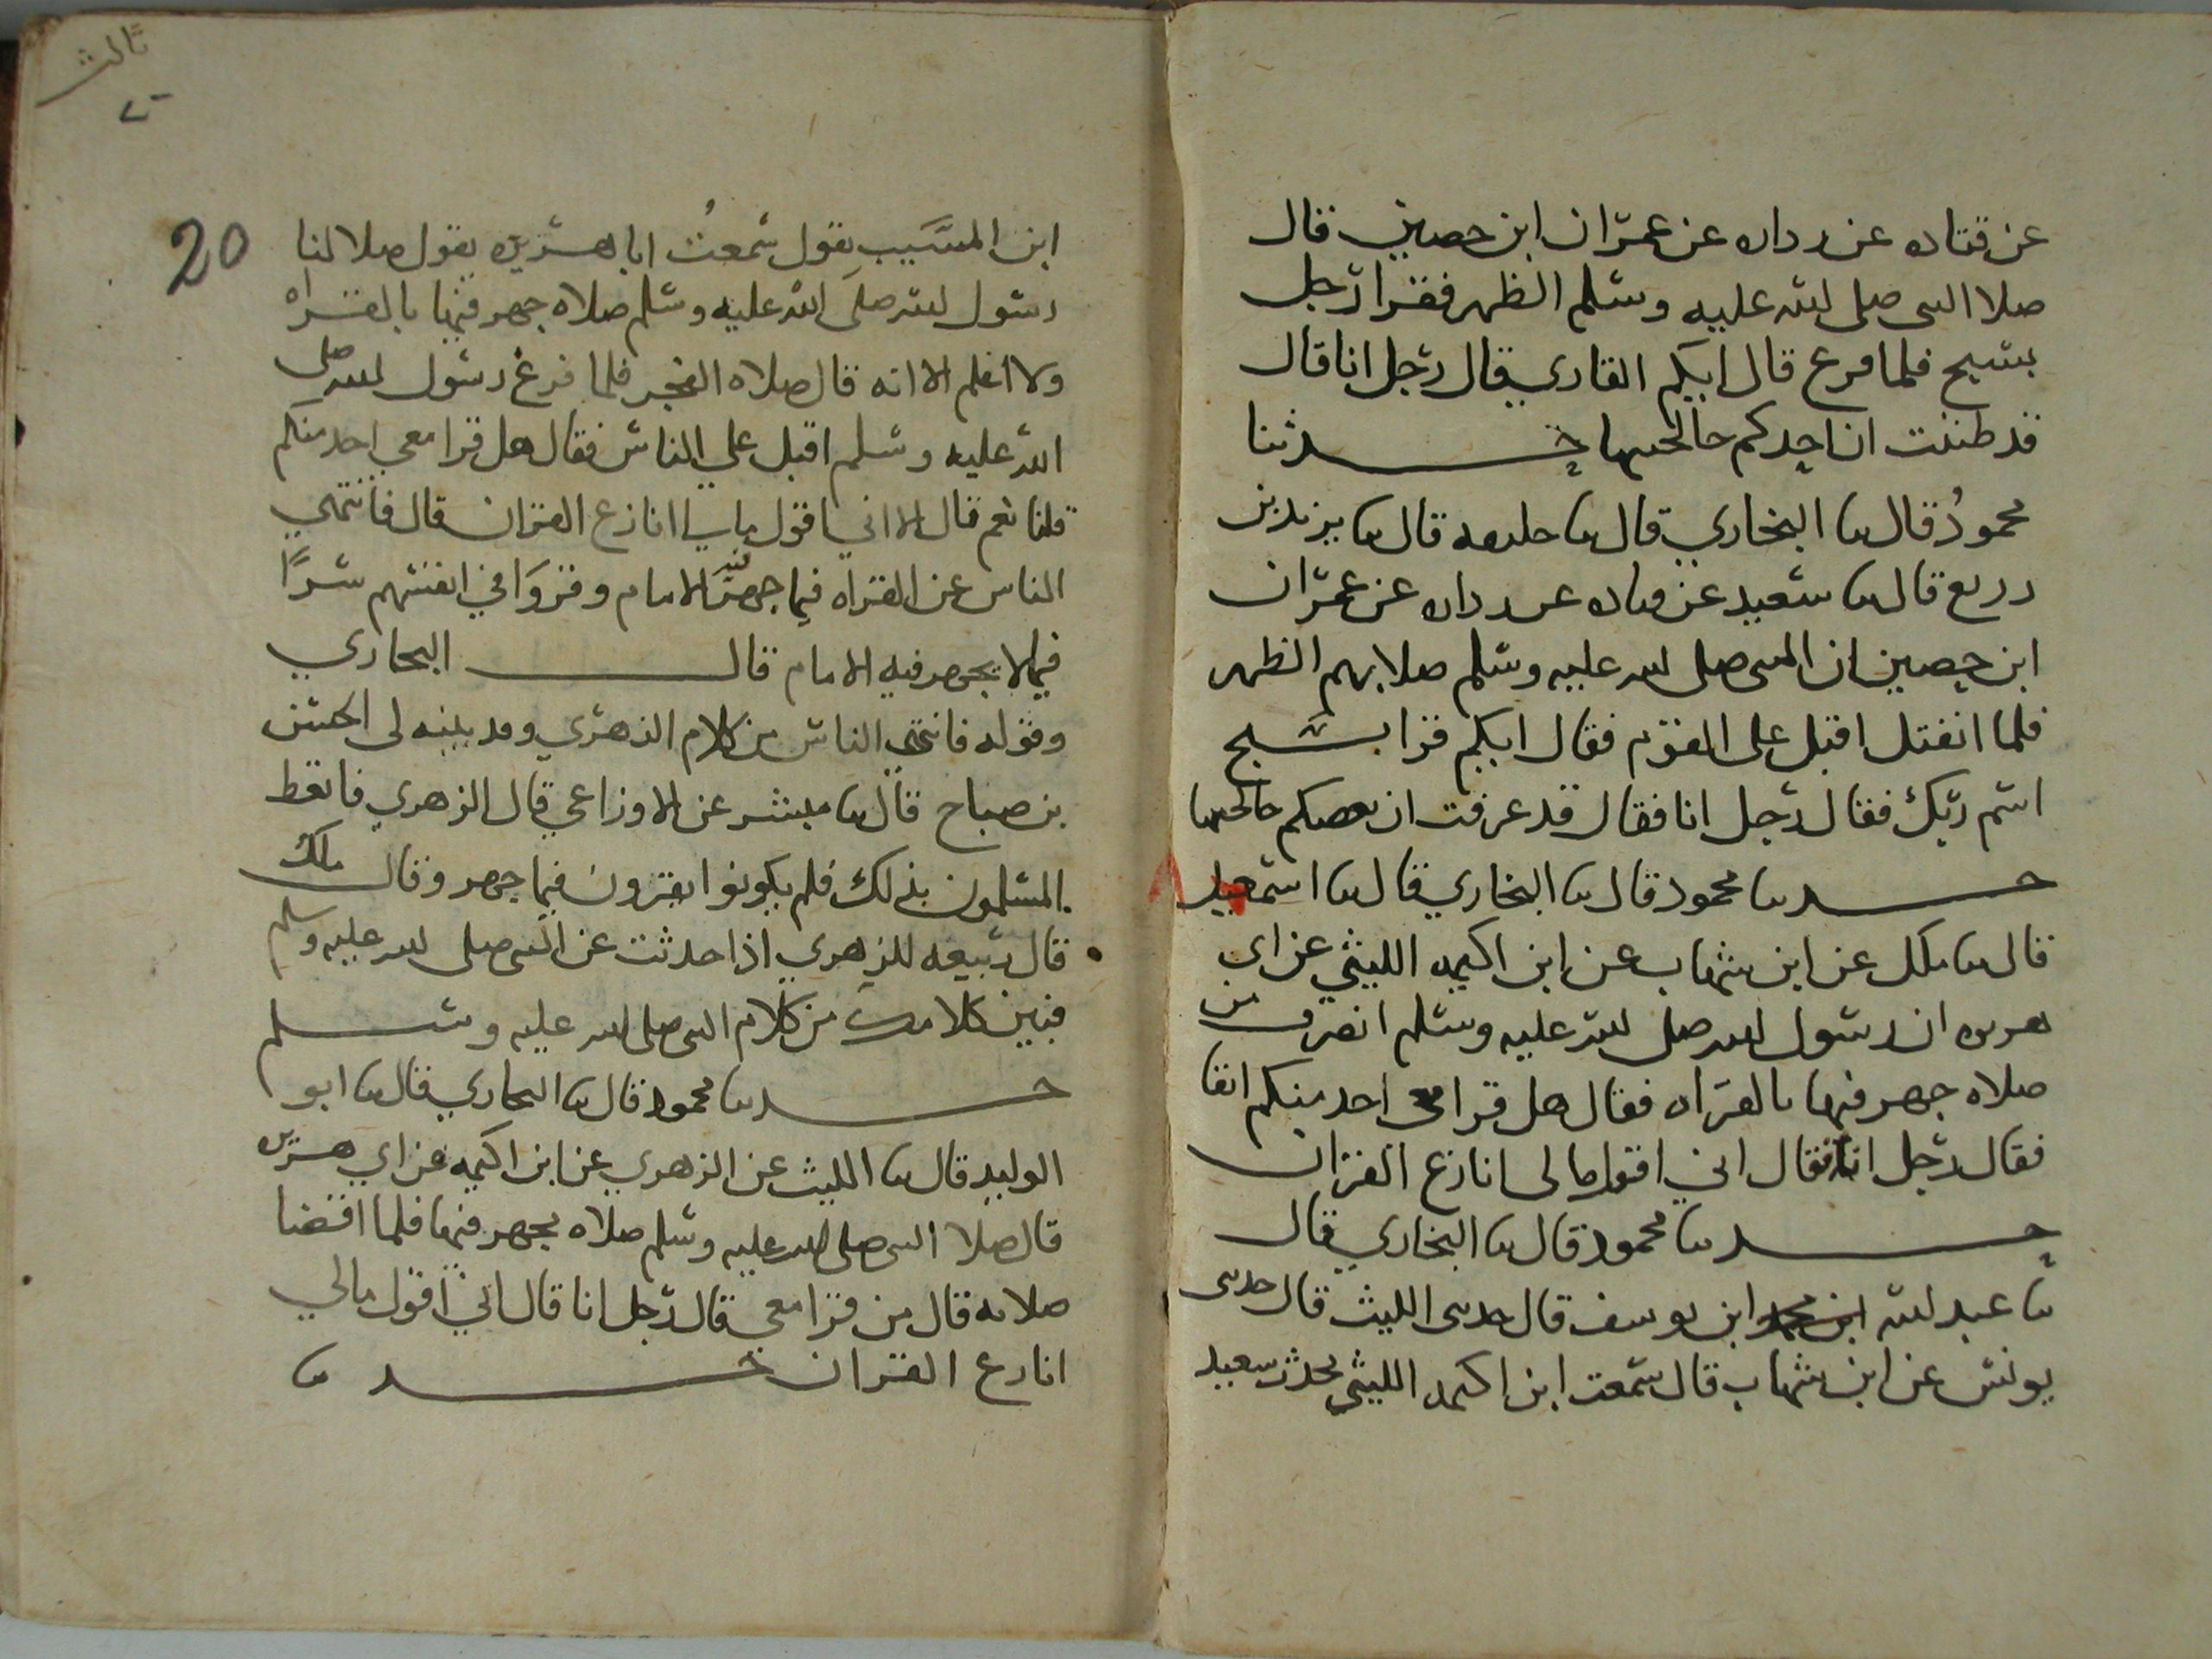 عن قتاده عن زراره عن عمران ابن حصين قال
صلا النبي صلى الله عليه وسلم الظهر فقرا رجل
بسبح فلما فرغ قال ايكم القاري قال رجل انا قال
قد ظننت ان احدكم خالجنيها حدثنا
محمود قال ثنا البخاري قال ثنا خليفه قال ثنا يزيد بن
زريع قال ثنا سعيد عن قتاده عن زراره عن عمران
ابن حصين ان النبي صلى الله عليه وسلم صلا بهم الظهر
فلما انفتل اقبل على القوم فقال ايكم قرا بسبح
اسم ربك فقال رجل انا فقال قد عرفت ان بعضكم خالجنيها
حدثنا محمود قال ثنا البخاري قال ثنا اسمعيل
قال ثنا ملك عن ابن شهاب عن ابن اكيمه الليثي عن ابي
هريره ان رسول الله صلى الله عليه وسلم انصرف من
صلاه جهر فيها بالقراه فقال هل قرا معي احد منكم انفا
فقال رجل انا فقال اني اقول ما لي انازع القران
حدثنا محمود قال ثنا البخاري قال
ثنا عبد الله ابن محمد ابن يوسف قال حدثني الليث قال حدثني
يونس عن ابن شهاب قال سمعت ابن اكيمه الليثي يحدث سعيد
ثالث
20
ابن المسيب يقول سمعت ابا هريره يقول صلا لنا
رسول الله صلى الله عليه وسلم صلاه جهر فيها بالقراه
ولا اعلم الا انه قال صلاه الفجر فلما فرغ رسول الله صلى
الله عليه وسلم اقبل على الناس فقال هل قرا معي احد منكم
قلنا نعم قال الا اني اقول مالي انازع القران قال فانتهى
الناس عن القراه فيما جهر فيه الامام وقروا في انفسهم سرا
فيما لا يجهر فيه الامام قال البخاري
وقوله فانتهى الناس من كلام الزهري وقد بينه لي الحسن
بن صباح قال ثنا مبشر عن الاوزاعي قال الزهري فاتعظ
المسلمون بذلك فلم يكونوا يقرون فيما جهر وقال ملك
قال ربيعه للزهري اذا حدثت عن النبي صلى الله عليه وسلم
فبين كلامك من كلام النبي صلى الله عليه وسلم
حدثنا محمود قال ثنا البخاري قال ثنا ابو
الوليد قال ثنا الليث عن الزهري عن ابن اكيمه عن ابي هريره
قال صلا النبي صلى الله عليه وسلم صلاه يجهر فيها فلما اقضا
صلاته قال من قرا معي قال رجل انا قال اني اقول مالي
انازع القران حدثنا